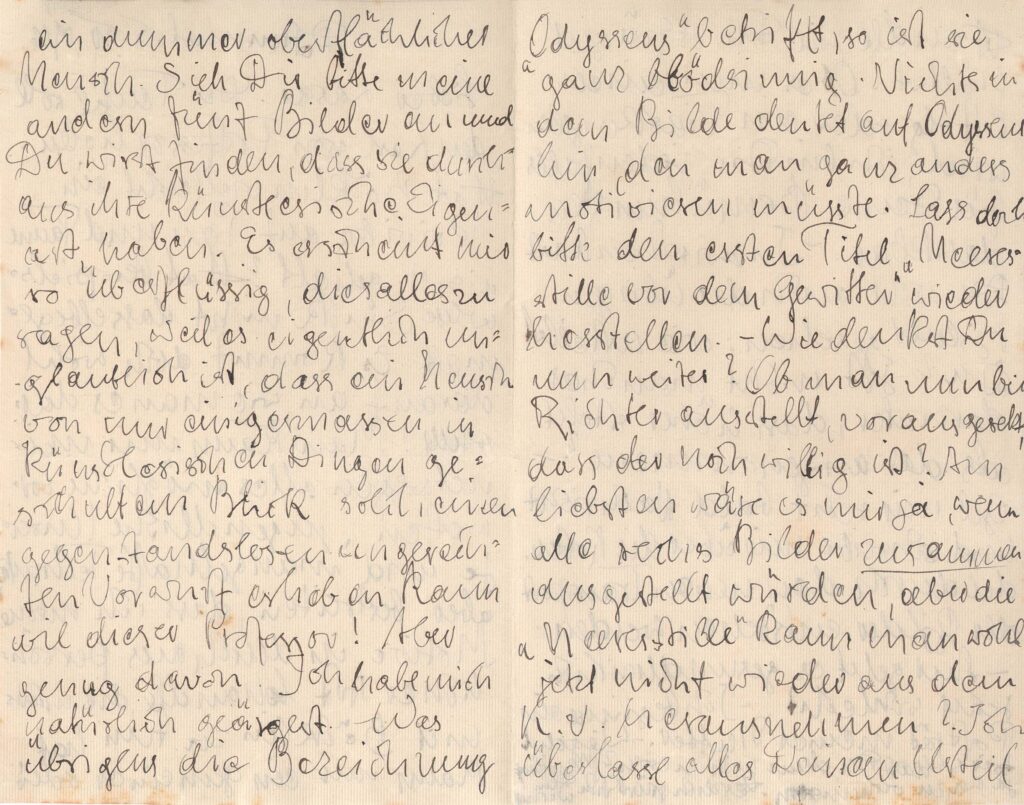 ein dummer oberflächlicher
Mensch. Sieh Dir bitte meine
andern fünf Bilder an und
Du wirst finden, dass sie durch=
aus ihre künstlerische Eigen=
art haben. Es erscheint mir
so überflüssig, dies alles zu
sagen, weil es eigentlich un=
glaublich ist, dass ein Mensch
von nur einigermassen in
künstlerischen Dingen ge=
schultem Blick solch einen
gegenstandslosen ungerech=
ten Vorwurf erheben kann
wie dieser Professor! Aber
genug davon. Ich habe mich
natürlich geärgert. – Was
übrigens die Bezeichnung
Odysseus" betrifft, so ist sie
ganz blödsinnig. Nichts in
dem Bilde deutet auf Odysseus
hin, den man ganz anders
motivieren müsste. Lass doch
bitte den ersten Titel „Meeres=
stille vor dem Gewitter" wieder
herstellen. – Wie denkst Du
nun weiter? Ob man nun bei
Richter ausstellt, vorausgesetzt,
dass der noch willig ist? Am
liebsten wäre es mir ja, wenn
alle sechs Bilder zusammen
ausgestellt würden, aber die
„Meeresstille" kann man wohl
jetzt nicht wieder aus dem
K.V. herausnehmen? Ich
überlasse alles Deinem Urteil